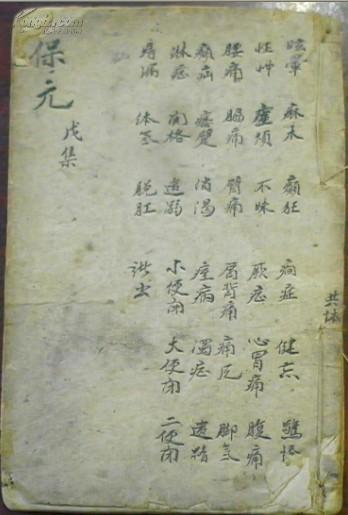 共訂
眩暈 麻木 癲狂 痫症 健忘 驚悸
怔忡 虛煩 不寐 厥症 心胃痛 腹痛
腰痛 脇痛 臂痛 肩背痛 痛风 脚氣
癩疝 痿躄 消渴 痓病 濁症 遺精
淋症 関格 遺溺 小便闭 大便闭 二便闭
痔漏 体氣 脱肛 諸虫
戊集
保元